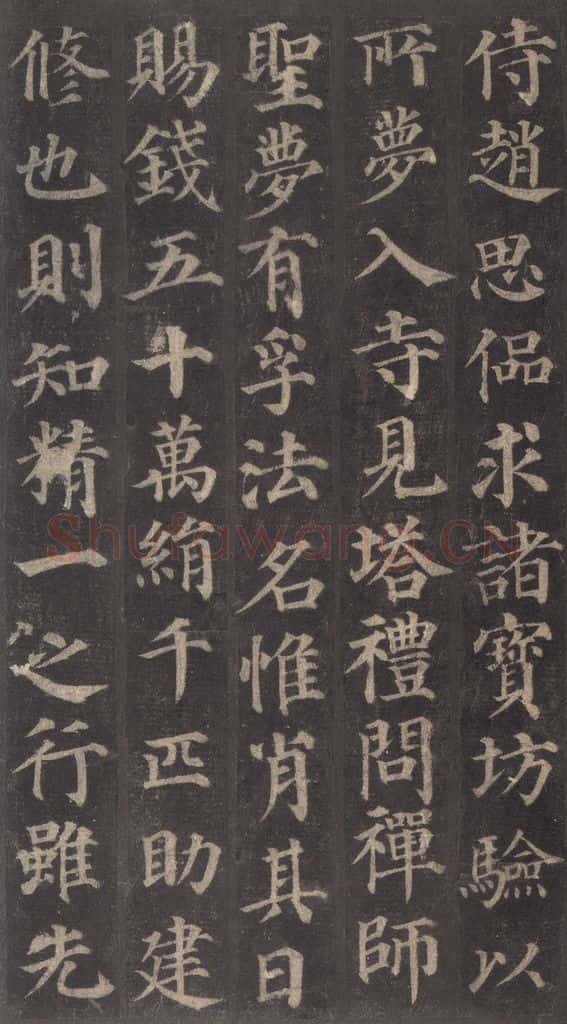 侍趙思侃求諸寶坊驗以
所夢入寺見塔禮問禪師
聖夢有孚法名惟肖其日
賜錢五十萬絹千匹助建
修也則知精一之行雖先
Shufawang.CN